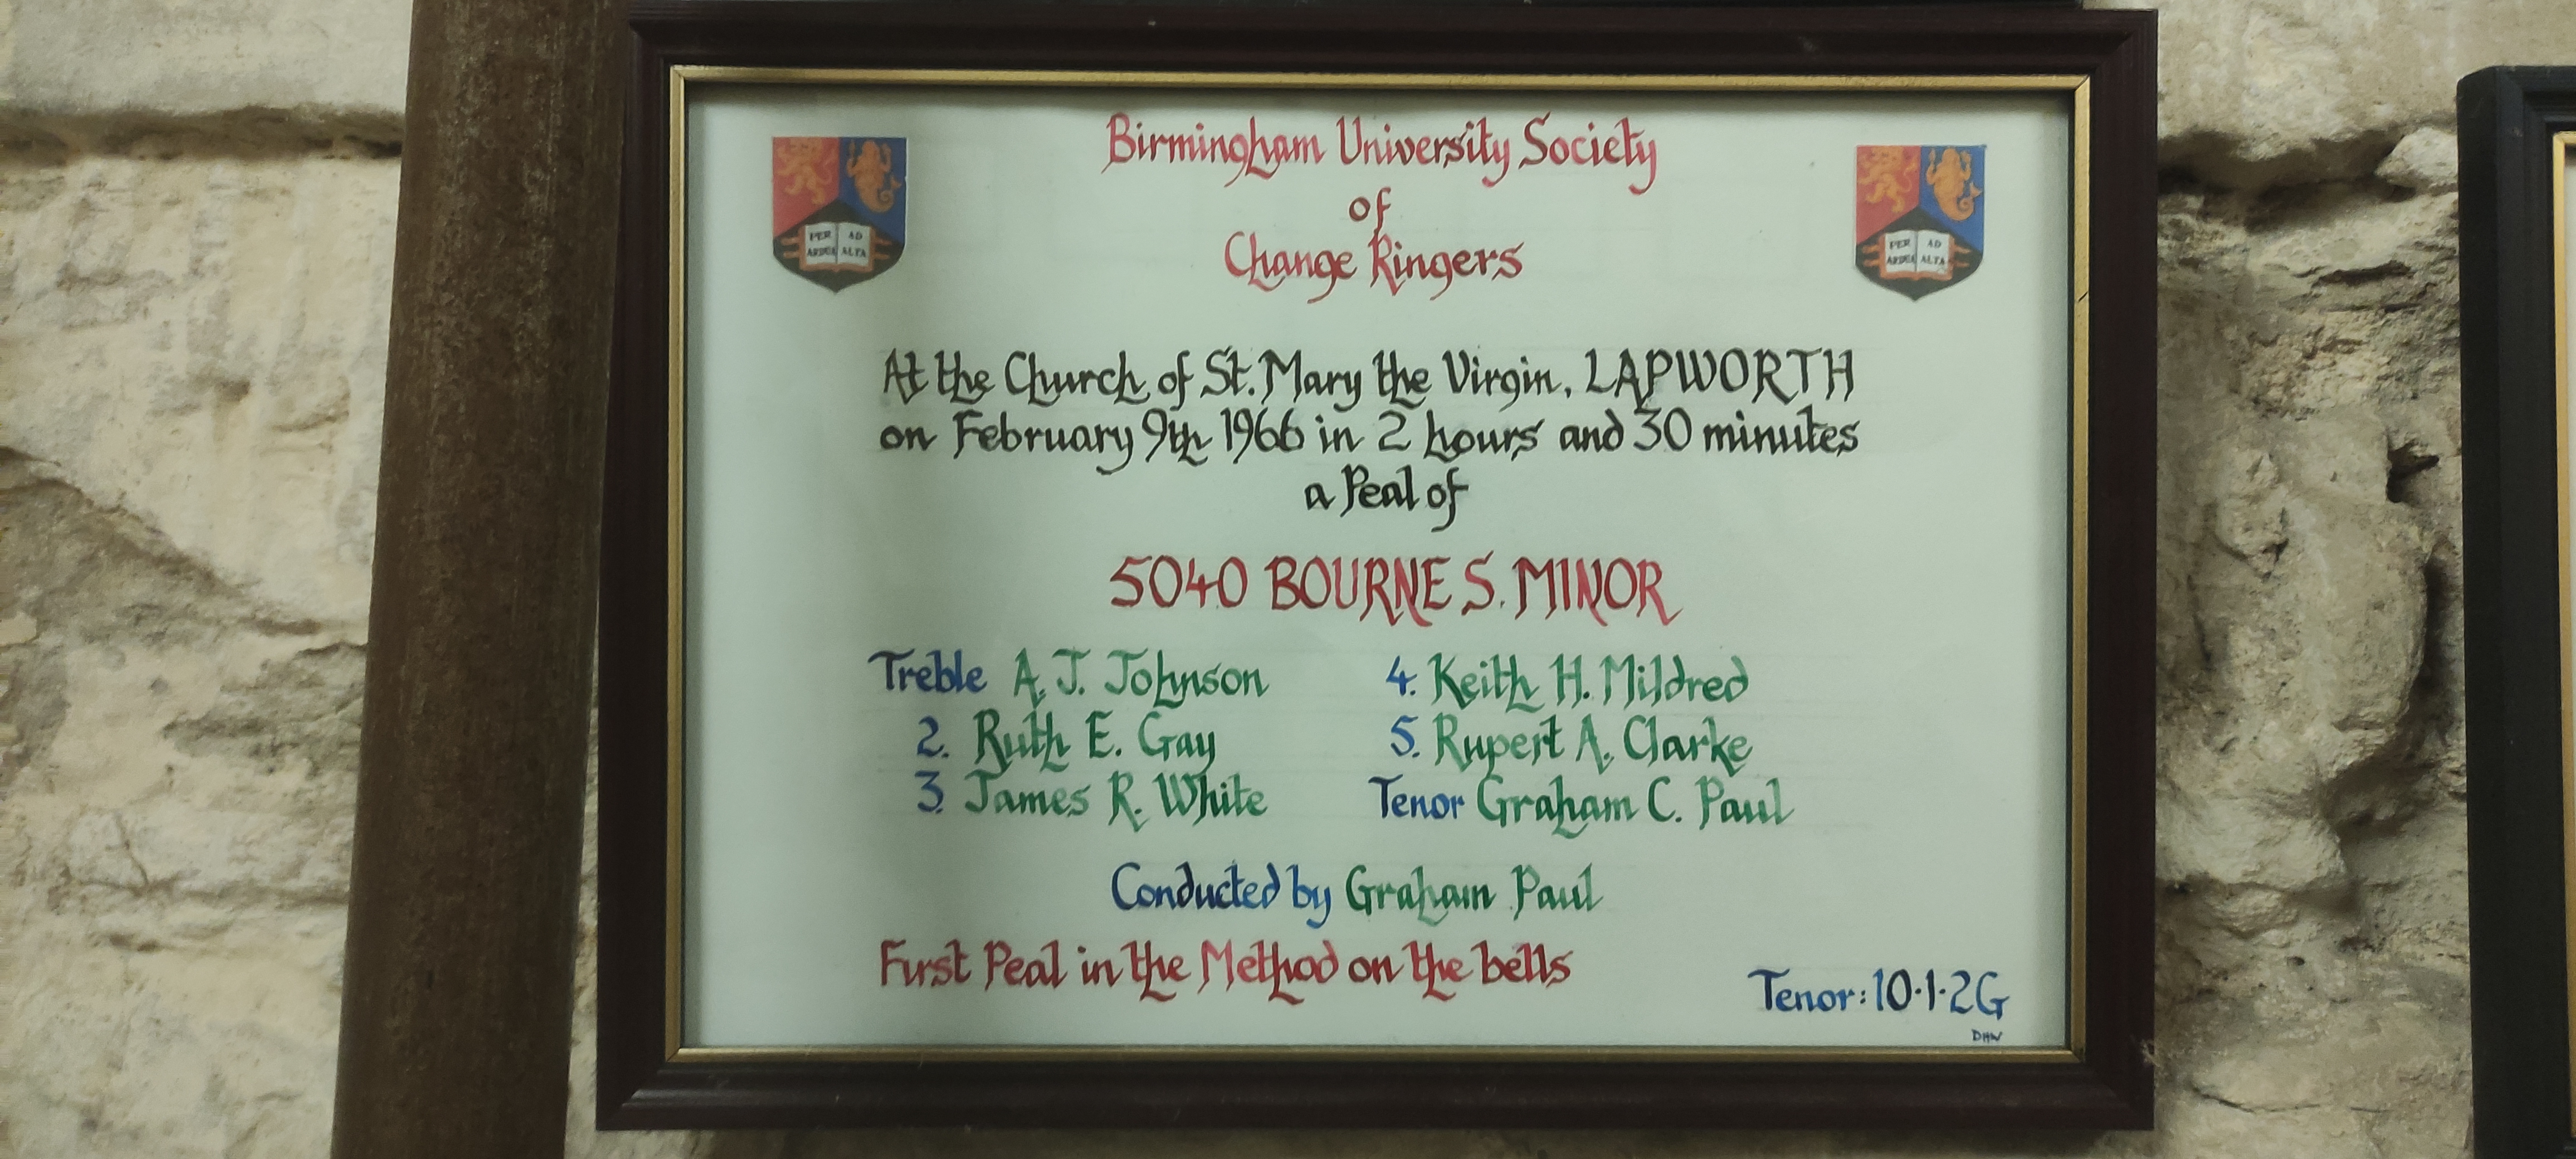 Birmingham University Society
of
Change Ringers
PER AD
ARDUA ALTA
PER AD
ARDUA ALTA
At the Church of St. Mary the Virgin, LAPWORTH
on February 9th 1966 in 2 hours and 30 minutes
a Peal of
5040 BOURNE S. MINOR
Treble A. J. Johnson
2. Ruth E. Gay
3. James R. White
4. Keith H. Mildred
5. Rupert A. Clarke
Tenor Graham C. Paul
Conducted by Graham Paul
First Peal in the Method on the bells
Tenor: 10·1·2G
DHW